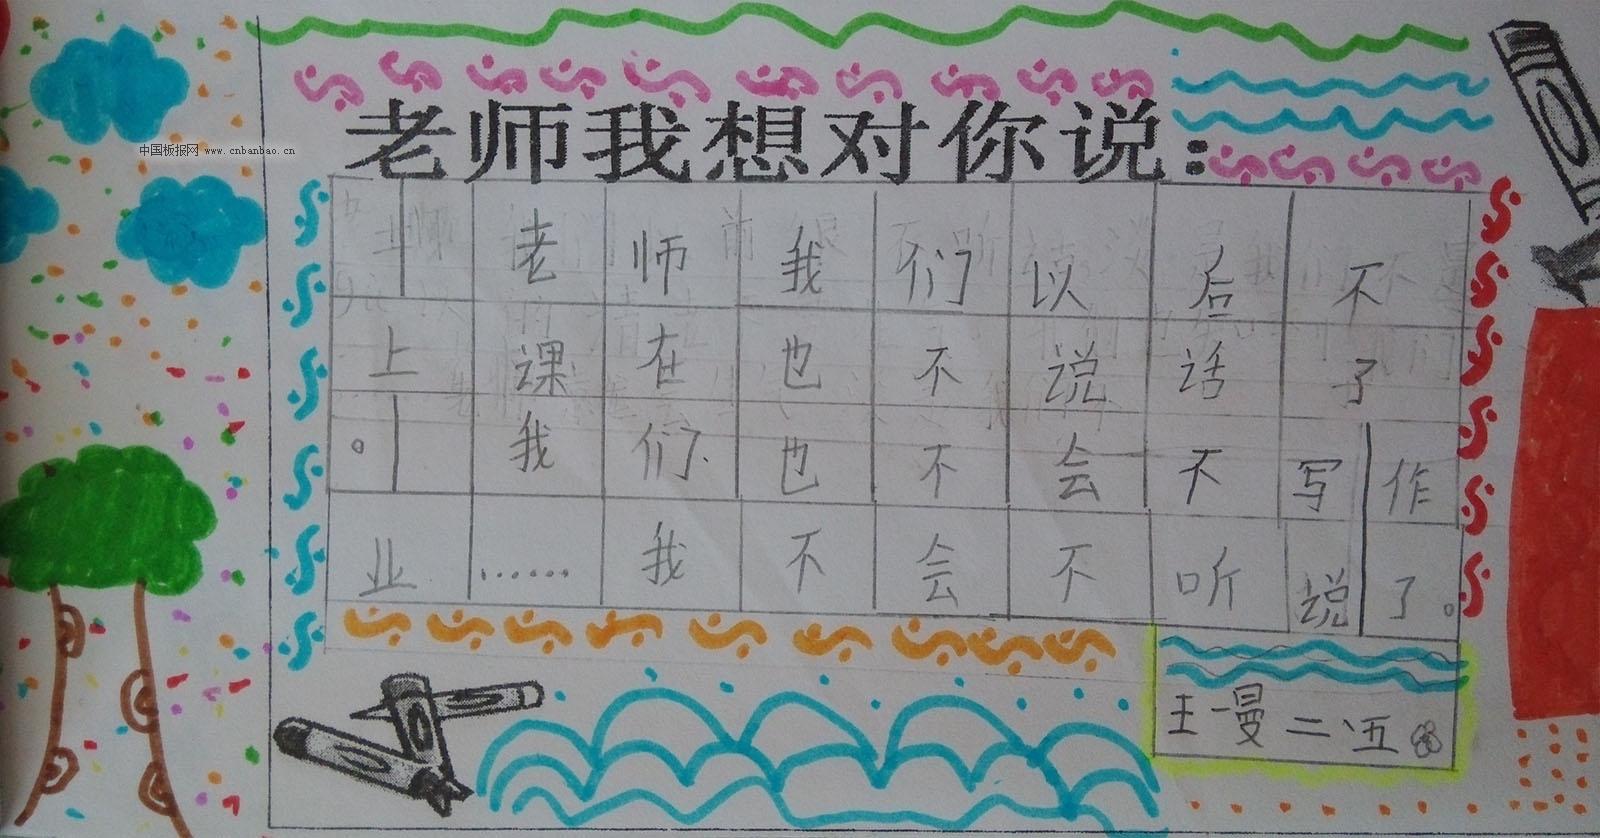 中国板报网 www.cnbanbao.cn
老师我想对你说:
老师我们以后不
上课在也不说话了
。我们也不会不写作
业……我不会不听说了。
王一曼二、五